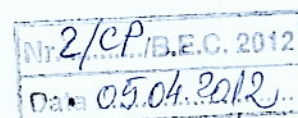 Nr. 2/CP/B.E.C. 2012
Data 05.04.2012